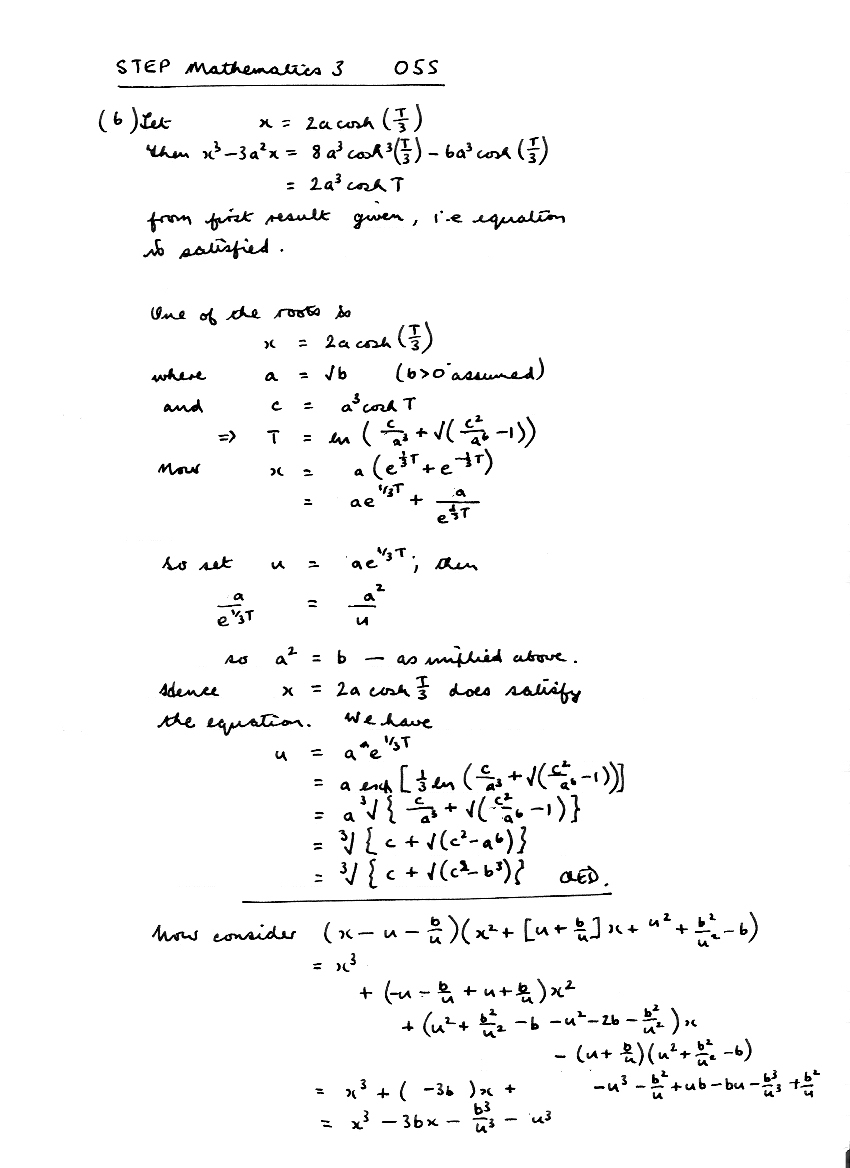 STEP Mathematics 3 05S
(6) Let x = 2a cosh (T/3)
then x³-3a²x = 8a³ cosh³(T/3) - 6a³ cosh (T/3)
= 2a³ cosh T
from first result given, i.e equation
is satisfied.
One of the roots is
x = 2a cosh (T/3)
where a = √b (b>0 assumed)
and c = a³ cosh T
=> T = ln ( c/a³ + √( c²/a⁶ -1))
Now x = a (e^{⅓T} + e^{-⅓T})
= ae^{1/3T} + a/e^{⅓T}
so set u = ae^{1/3T}; then
a/e^{1/3T} = a²/u
so a² = b — as implied above.
Hence x = 2a cosh T/3 does satisfy
the equation. We have
u = a e^{1/3T}
= a exp [ ⅓ ln ( c/a³ + √( c²/a⁶ -1))]
= a ³√{ c/a³ + √( c²/a⁶ -1)}
= ³√{ c + √(c²-a⁶)}
= ³√{ c + √(c²-b³)} QED.
Now consider (x - u - b/u)(x² + [u + b/u] x + u² + b²/u² - b)
= x³
+ (-u - b/u + u + b/u) x²
+ (u² + b²/u² - b - u² - 2b - b²/u²) x
- (u + b/u)(u² + b²/u² - b)
= x³ + ( -3b ) x + -u³ - b²/u + ub - bu - b³/u³ + b²/u
= x³ - 3bx - b³/u³ - u³